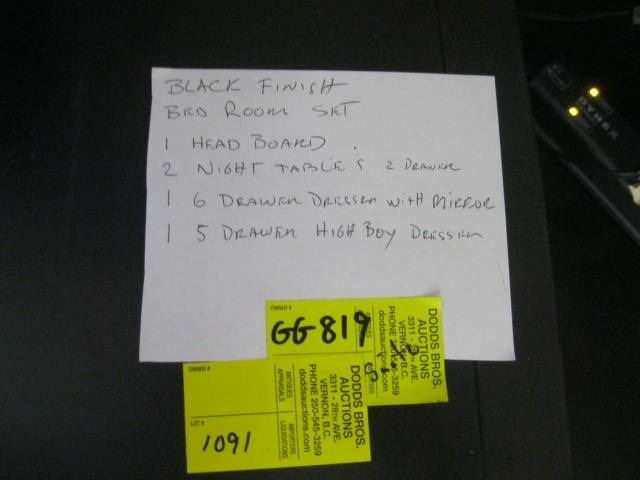 BLACK FINISH
BED ROOM SET
1 HEAD BOARD.
2 NIGHT TABLES 2 DRAWER
1 6 DRAWER DRESSER WITH MIRROR
1 5 DRAWER HIGH BOY DRESSER
DYNEX
OWNER #
GG 819
DODDS BROS.
AUCTIONS
3311 - 28TH AVE.
VERNON, B.C.
PHONE 250-545-3259
doddsauctions.com
OWNER #
LOT #
1091
DODDS BROS.
AUCTIONS
3311 - 28TH AVE.
VERNON, B.C.
PHONE 250-545-3259
doddsauctions.com
ANTIQUES
APPRAISALS
IMPORTERS
LIQUIDATIONS